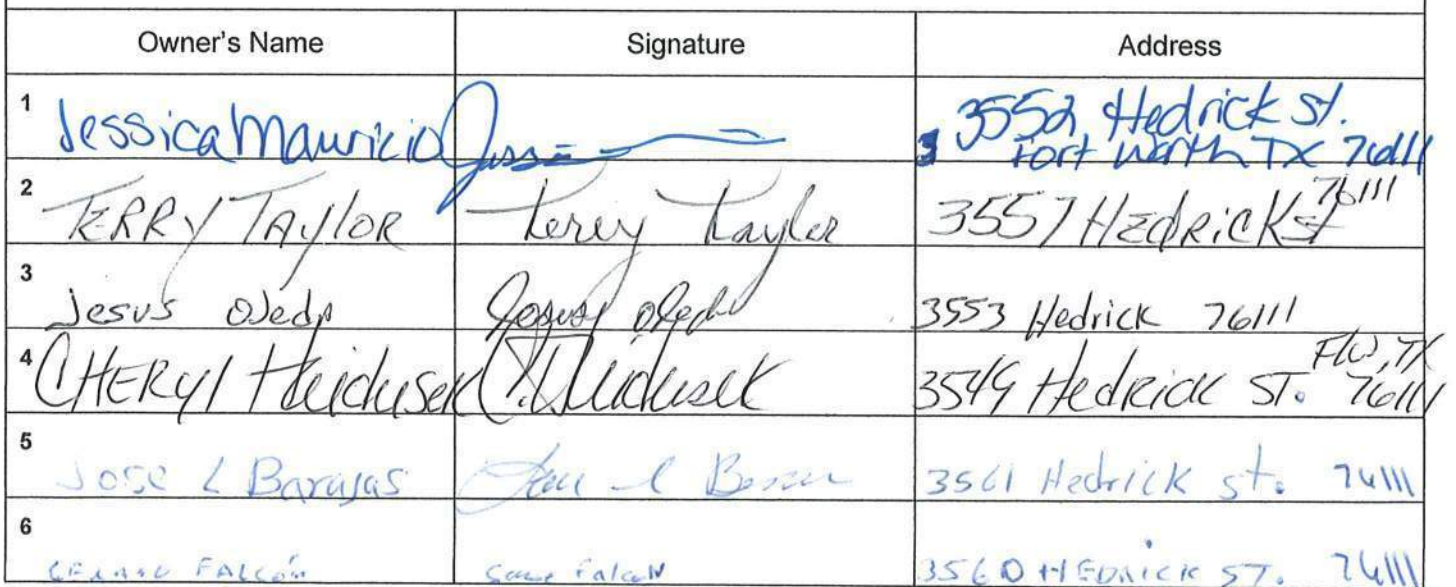 Owner's Name Signature Address
1 Jessica Mauricio 3552 Hedrick St.
Fort Worth TX 76111
2 TERRY TAylOR Terry Taylor 3557 HEdRicK St 76111
3 Jesus Ojeda Jesus Ojeda 3553 Hedrick 76111
4 CHERyl Heidusek C. Heidusek 3549 Hedrick ST. FW, TX 76111
5 Jose L Barajas 3561 Hedrick st. 76111
6 FALCÓN Falcon 3560 HEDRICK ST. 76111